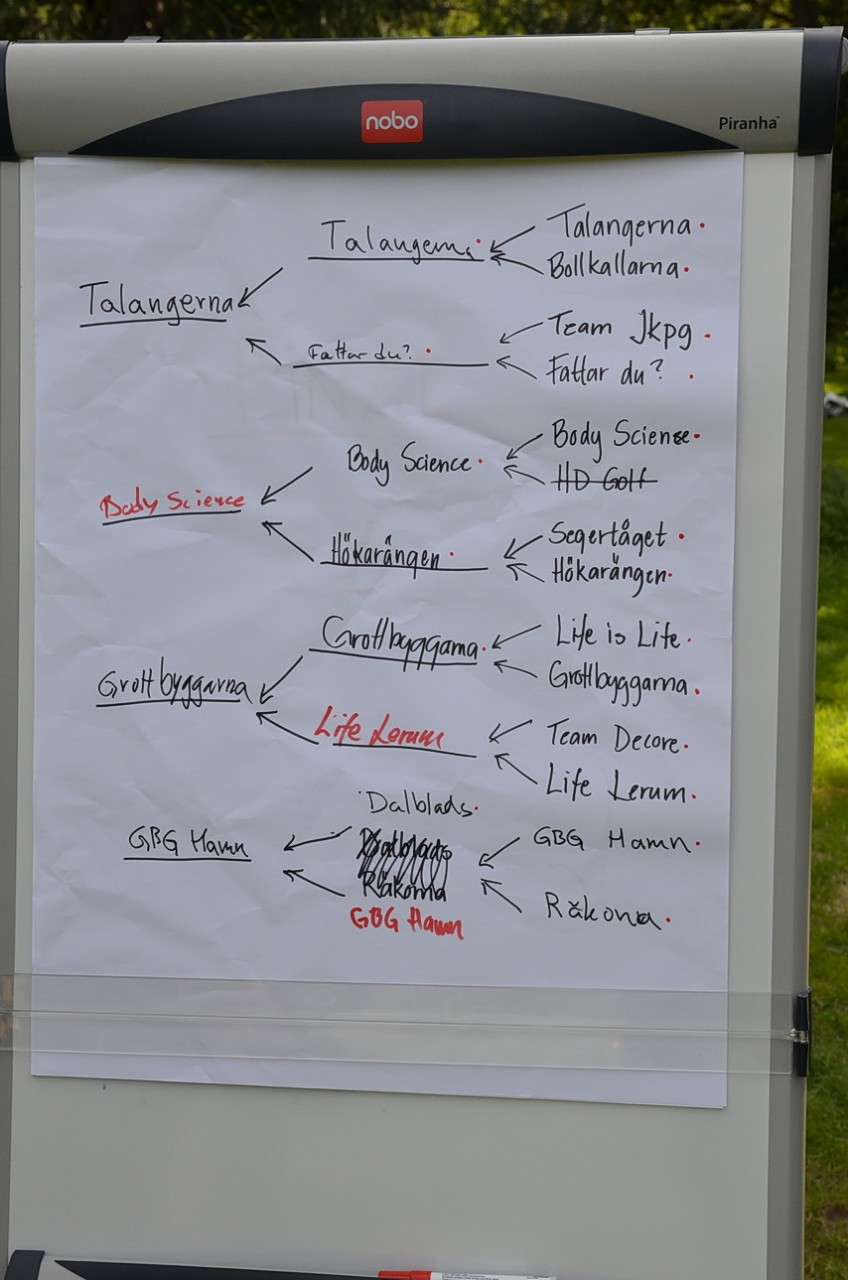 nobo
Piranha
Talangerna
Talangerna
Bollkallarna
Talangerna
Fattar du?
Team Jkpg
Fattar du?
Body Science
Body Science
HD Golf
Body Science
Hökarängen
Segertåget
Hökarängen
Grottbyggarna
Life is Life
Grottbyggarna
Grottbyggarna
Life Lerum
Team Decore
Life Lerum
Dalblads
GBG Hamn
Dalblads
GBG Hamn
Räkorna
Räkona
GBG Hamn